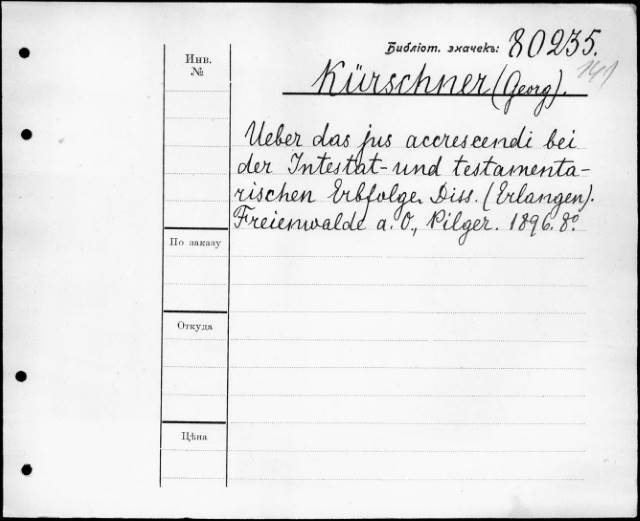 Библіот. значекъ: 80235.
141
Инв.
№
Kürschner (Georg).
Ueber das jus accrescendi bei
der Intestat- und testamenta-
rischen Erbfolge. Diss. (Erlangen).
Freienwalde a. O., Pilger. 1896. 8º
По заказу
Откуда
Цѣна